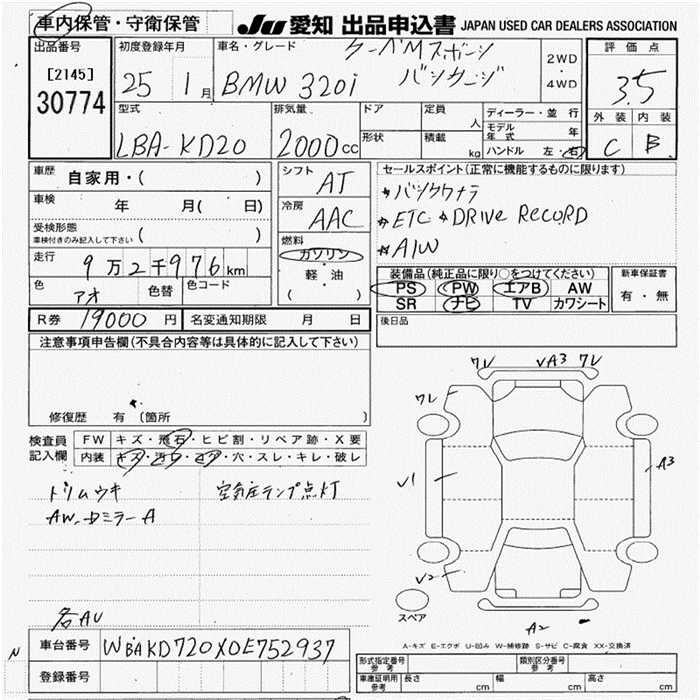 車内保管・守衛保管
JU 愛知 出品申込書 JAPAN USED CAR DEALERS ASSOCIATION
出品番号
[2145]
30774
初度登録年月
25 1月
車名・グレード
BMW 320i
2WD
・
4WD
評価点
3.5
外装 内装
C B
型式
LBA-KD20
排気量
2000cc
ドア
形状
定員 人
積載 kg
ディーラー・並行
モデル年式 年
ハンドル 左・右
車歴 自家用・( )
車検 年 月( 日)
受検形態
車検付きのみ記入して下さい ( )
走行 9万2千976km
色 アオ 色替 色コード
シフト AT
冷房 AAC
燃料
ガソリン
・
軽油
( )
セールスポイント(正常に機能するものに限ります)
ETC DRIVE RECORD
A/W
装備品(純正品に限り○をつけてください)
PS PW エアB AW
SR ナビ TV カワシート
新車保証書
有・無
R券 19000円 名変通知期限 月 日
後日品
注意事項申告欄(不具合内容等は具体的に記入して下さい)
修復歴 有 (箇所 )
検査員記入欄
FW キズ・飛石・ヒビ割・リペア跡・X要
内装 キズ・汚レ・コゲ・穴・スレ・キレ・破レ
トリムウキ 空気圧ランプ点灯
AW、Dミラー A
各AU
ワレ VA3 ワレ
ワレ
V1
A3
V2
A2
スペア
A-キズ E-エクボ U-凹み W-補修跡 S-サビ C-腐食 XX-交換済
N
車台番号 WBAKD720X0E752937
登録番号
形式指定番号 参考
類別区分番号 参考
車庫証明用 参考 長さ cm 幅 cm 高さ cm